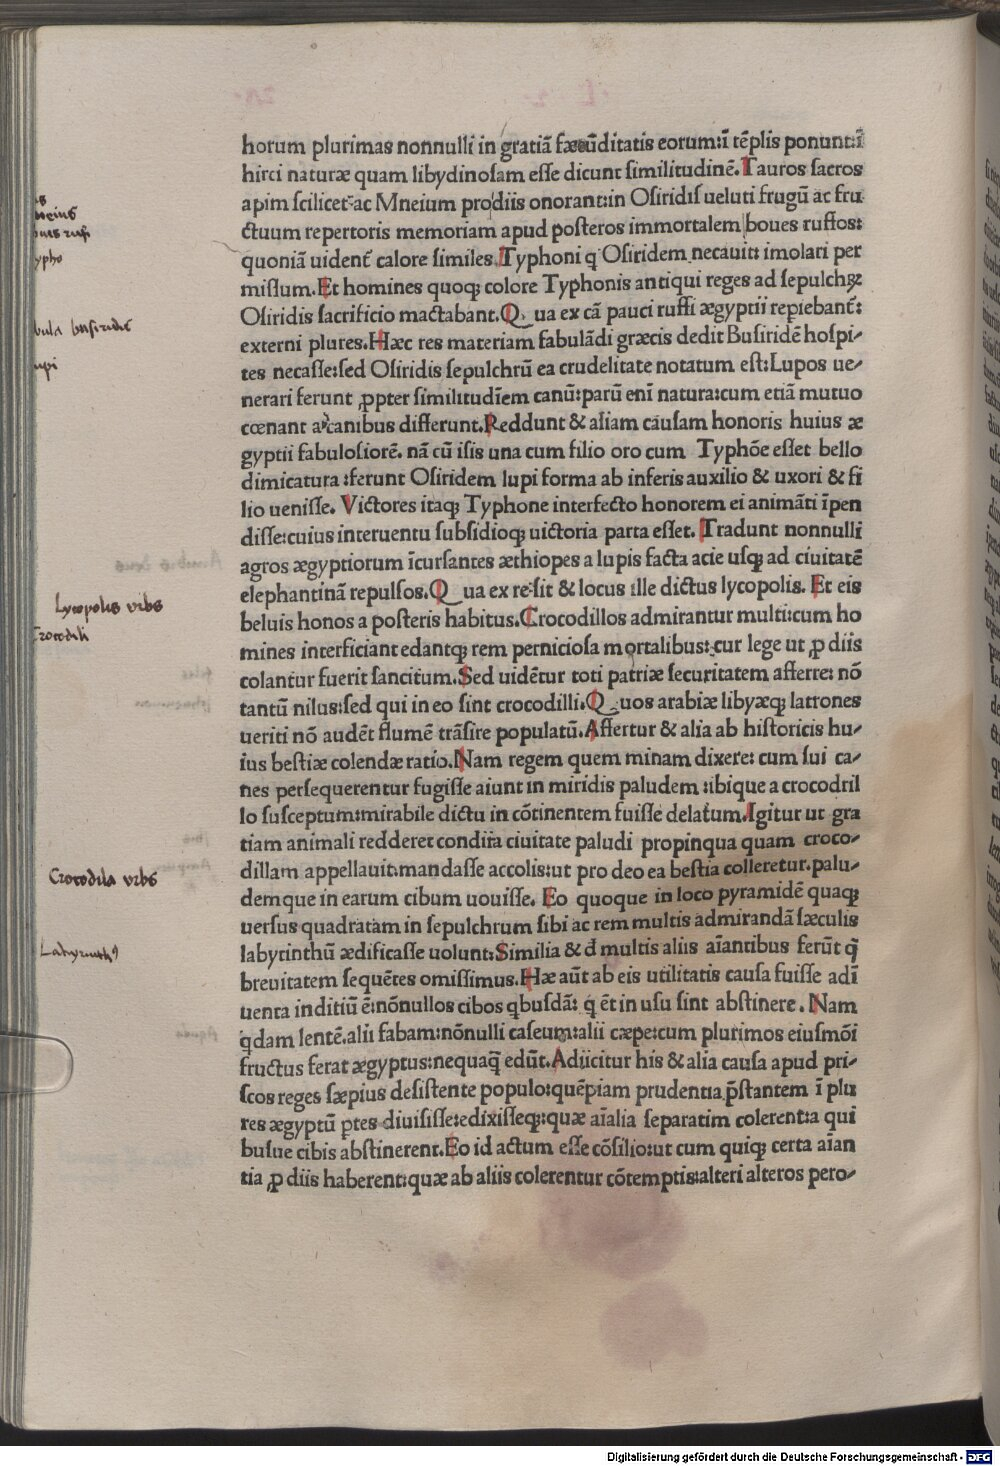 horum plurimas nonnulli in gratiā fœcūditatis eorum:ī tēplis ponunt:ī
hirci naturæ quam libydinosam esse dicunt similitudinē.Tauros sacros
apim scilicet ac Mneium prodiis onorant:in Osiridis ueluti frugū ac fru
ctuum repertoris memoriam apud posteros immortalem boues ruffos:
quoniā uidenť calore similes.Typhoni q Osiridem necauit: imolari per
missum.Et homines quoqꝫ colore Typhonis antiqui reges ad sepulchꝝ
Osiridis sacrificio mactabant.Qua ex cā pauci ruffi ægyptii repiebanť:
externi plures.Hæc res materiam fabulādi græcis dedit Busiridē hospi-
tes necasse:sed Osiridis sepulchrū ea crudelitate notatum est:Lupos ue-
nerari ferunt ꝓpter similitudīem canū:parū enī natura:cum etiā mutuo
cœnant a canibus differunt.Reddunt & aliam causam honoris huius æ
gyptii fabulosiorē. nā cū isis una cum filio oro cum Typhōe esset bello
dimicatura :ferunt Osiridem lupi forma ab inferis auxilio & uxori & fi
lio uenisse. Victores itaqꝫ Typhone interfecto honorem ei animāti īpen
disse:cuius interuentu subsidioqꝫ uictoria parta esset. Tradunt nonnulli
agros ægyptiorum īcursantes æthiopes a lupis facta acie usqꝫ ad ciuitatē
elephantinā repulsos.Qua ex re sit & locus ille dictus lycopolis. Et eis
beluis honos a posteris habitus.Crocodillos admirantur multi:cum ho
mines interficiant edantqꝫ rem perniciosa mortalibus:cur lege ut ꝓ diis
colantur fuerit sancitum.Sed uidētur toti patriæ securitatem afferre: nō
tantū nilus:sed qui in eo sint crocodilli.Quos arabiæ libyæqꝫ latrones
ueriti nō audēt flumē trāsire populatū.Affertur & alia ab historicis hu-
ius bestiæ colendæ ratio.Nam regem quem minam dixere: cum sui ca-
nes persequerentur fugisse aiunt in miridis paludem :ibique a crocodril
lo susceptum:mirabile dictu in cōtinentem fuisse delatum.Igitur ut gra
tiam animali redderet condita ciuitate paludi propinqua quam croco-
dillam appellauit:mandasse accolis:ut pro deo ea bestia colleretur.palu-
demque in earum cibum uouisse. Eo quoque in loco pyramidē quaqꝫ
uersus quadratam in sepulchrum sibi ac rem multis admirandā sæculis
labyrinthū ædificasse uolunt:Similia & đ multis aliis aīantibus ferūt q̄
breuitatem sequētes omissimus.Hæ aūt ab eis utilitatis causa fuisse adī
uenta inditiū ē:nōnullos cibos qbusdā: q ēt in usu sint abstinere. Nam
qdam lentē.alii fabam:nōnulli caseum:alii cæpe:cum plurimos eiusmōi
fructus ferat ægyptus:nequaq̄ edūt.Adiicitur his & alia causa apud pri-
scos reges sæpius desistente populo:quēpiam prudentia p̄stantem ī plu
res ægyptū ꝑtes diuisisse:edixisseqꝫ:quæ aīalia separatim colerent:a qui
busue cibis abstinerent.Eo id actum esse cōsilio:ut cum quiqꝫ certa aīan
tia ꝓ diis haberent:quæ ab aliis colerentur cōtemptis:alteri alteros pero-
Lycopolis vrbs
Crocodili
Crocodila vrbs
Labyrinthꝰ
Digitalisierung gefördert durch die Deutsche Forschungsgemeinschaft - DFG